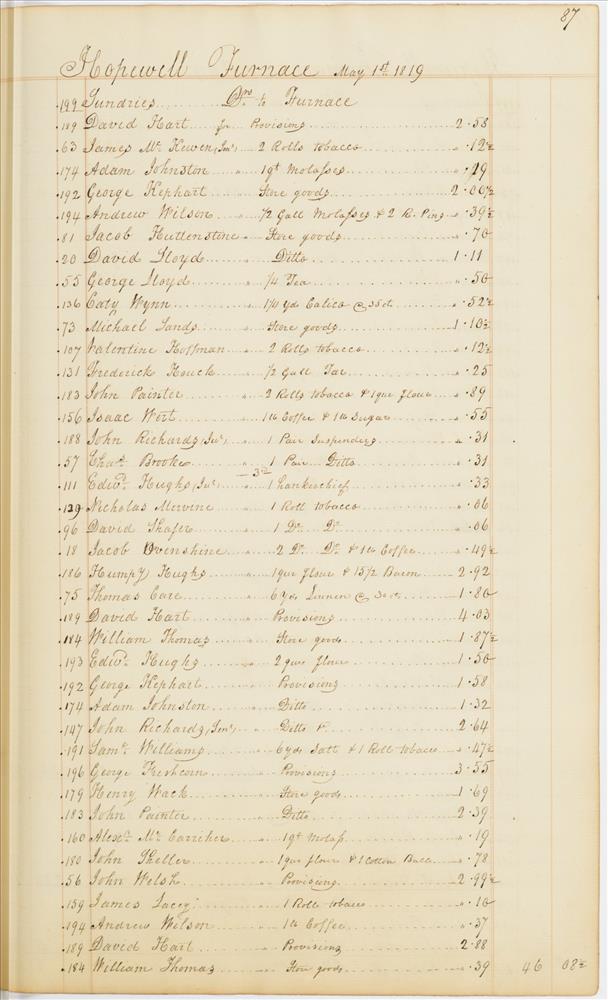 87
Hopewell Furnace May 1st 1819
199 Sundries Drs to Furnace
189 David Hart for Provisions 2.58
63 James Mc Kewen (Jnr) " 2 Rolls tobacco " .12½
174 Adam Johnston " 1 qt Molasses " .19
192 George Hephart " Store goods 2.00½
194 Andrew Wilson " 1/2 Gall Molasses & 2 R. Pins " .39½
81 Jacob Huttenstine " Store goods " .70
20 David Lloyd " Ditto 1.11
55 George Lloyd " 1/4 Tea " .50
136 Caty Wynn " 1½ yd Calico @ 35ct " .52½
73 Michael Sands " Store goods 1.10½
107 Valentine Hoffman " 2 Rolls tobacco " .12½
131 Frederick Houck " 1/2 Gall Tar " .25
183 John Painter " 2 Rolls tobacco & 1 qur flour " .89
156 Isaac Wert " 1 lb Coffee & 1 lb Sugar " .55
188 John Richards (Jur) " 1 Pair Suspenders " .31
57 Chas. Brooke " 1 Pair Ditto " .31
3rd
111 Edwd. Hughs (Jur) " 1 hankerchief " .33
129 Nicholas Mervine " 1 Roll tobacco " .06
96 David Shafer " 1 Do. Do. " .06
18 Jacob Ovenshine " 2 Do. Do. & 1 lb Coffee " .49½
186 Humpy Hughs " 1 qur flour & 15½ Bacon 2.92
75 Thomas Care " 6 yds Linnen @ 30ct 1.80
189 David Hart " Provisions 4.03
184 William Thomas " Store goods 1.87½
193 Edwd. Hughs " 2 qurs flour 1.50
192 George Hephart " Provisions 1.58
174 Adam Johnston " Ditto 1.32
147 John Richards (Senr) " Ditto 2.64
191 Saml. Williams " 6 yds Satt & 1 Roll tobacco " .47½
196 George Freshcorn " Provisions 3.55
179 Henry Wack " Store goods 1.69
183 John Painter " Ditto 2.39
160 Alexr. Mc Carricher " 1 qt Molass " .19
180 John Sheller " 1 qur flour & 1 Cotton Ball " .78
56 John Welsh " Provisions 2.99½
159 James Lacey " 1 Roll tobacco " .10
194 Andrew Wilson " 1 lb Coffee " .37
189 David Hart " Provisions 2.88
184 William Thomas " Store goods " .39 46 08½